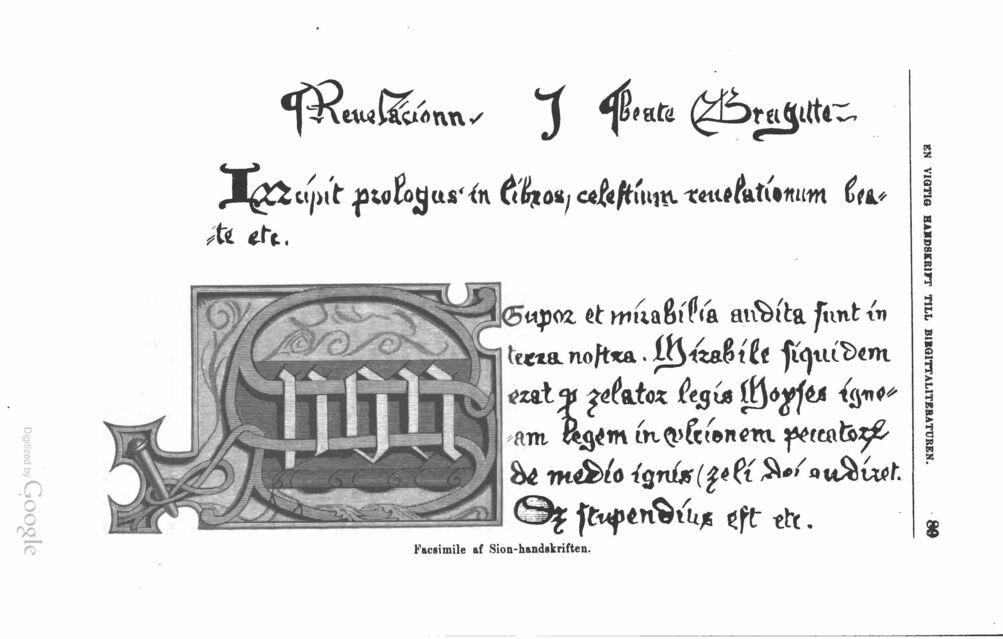 Reuelacionn I Beate Bragitte
Incipit prologus in libros, celestium reuelationum bea=
=te etc.
Stupor et mirabilia audita sunt in
terra nostra. Mirabile siquidem
erat ꝙ zelator legis Moyses igne=
=am legem in vlcionem peccatorꝝ
de medio ignis (zeli dei audiret.
Sz stupendius est etc.
Facsimile af Sion-handskriften.
EN VIGTIG HANDSKRIFT TILL BIRGITTALITERATUREN.
89
Digitized by Google